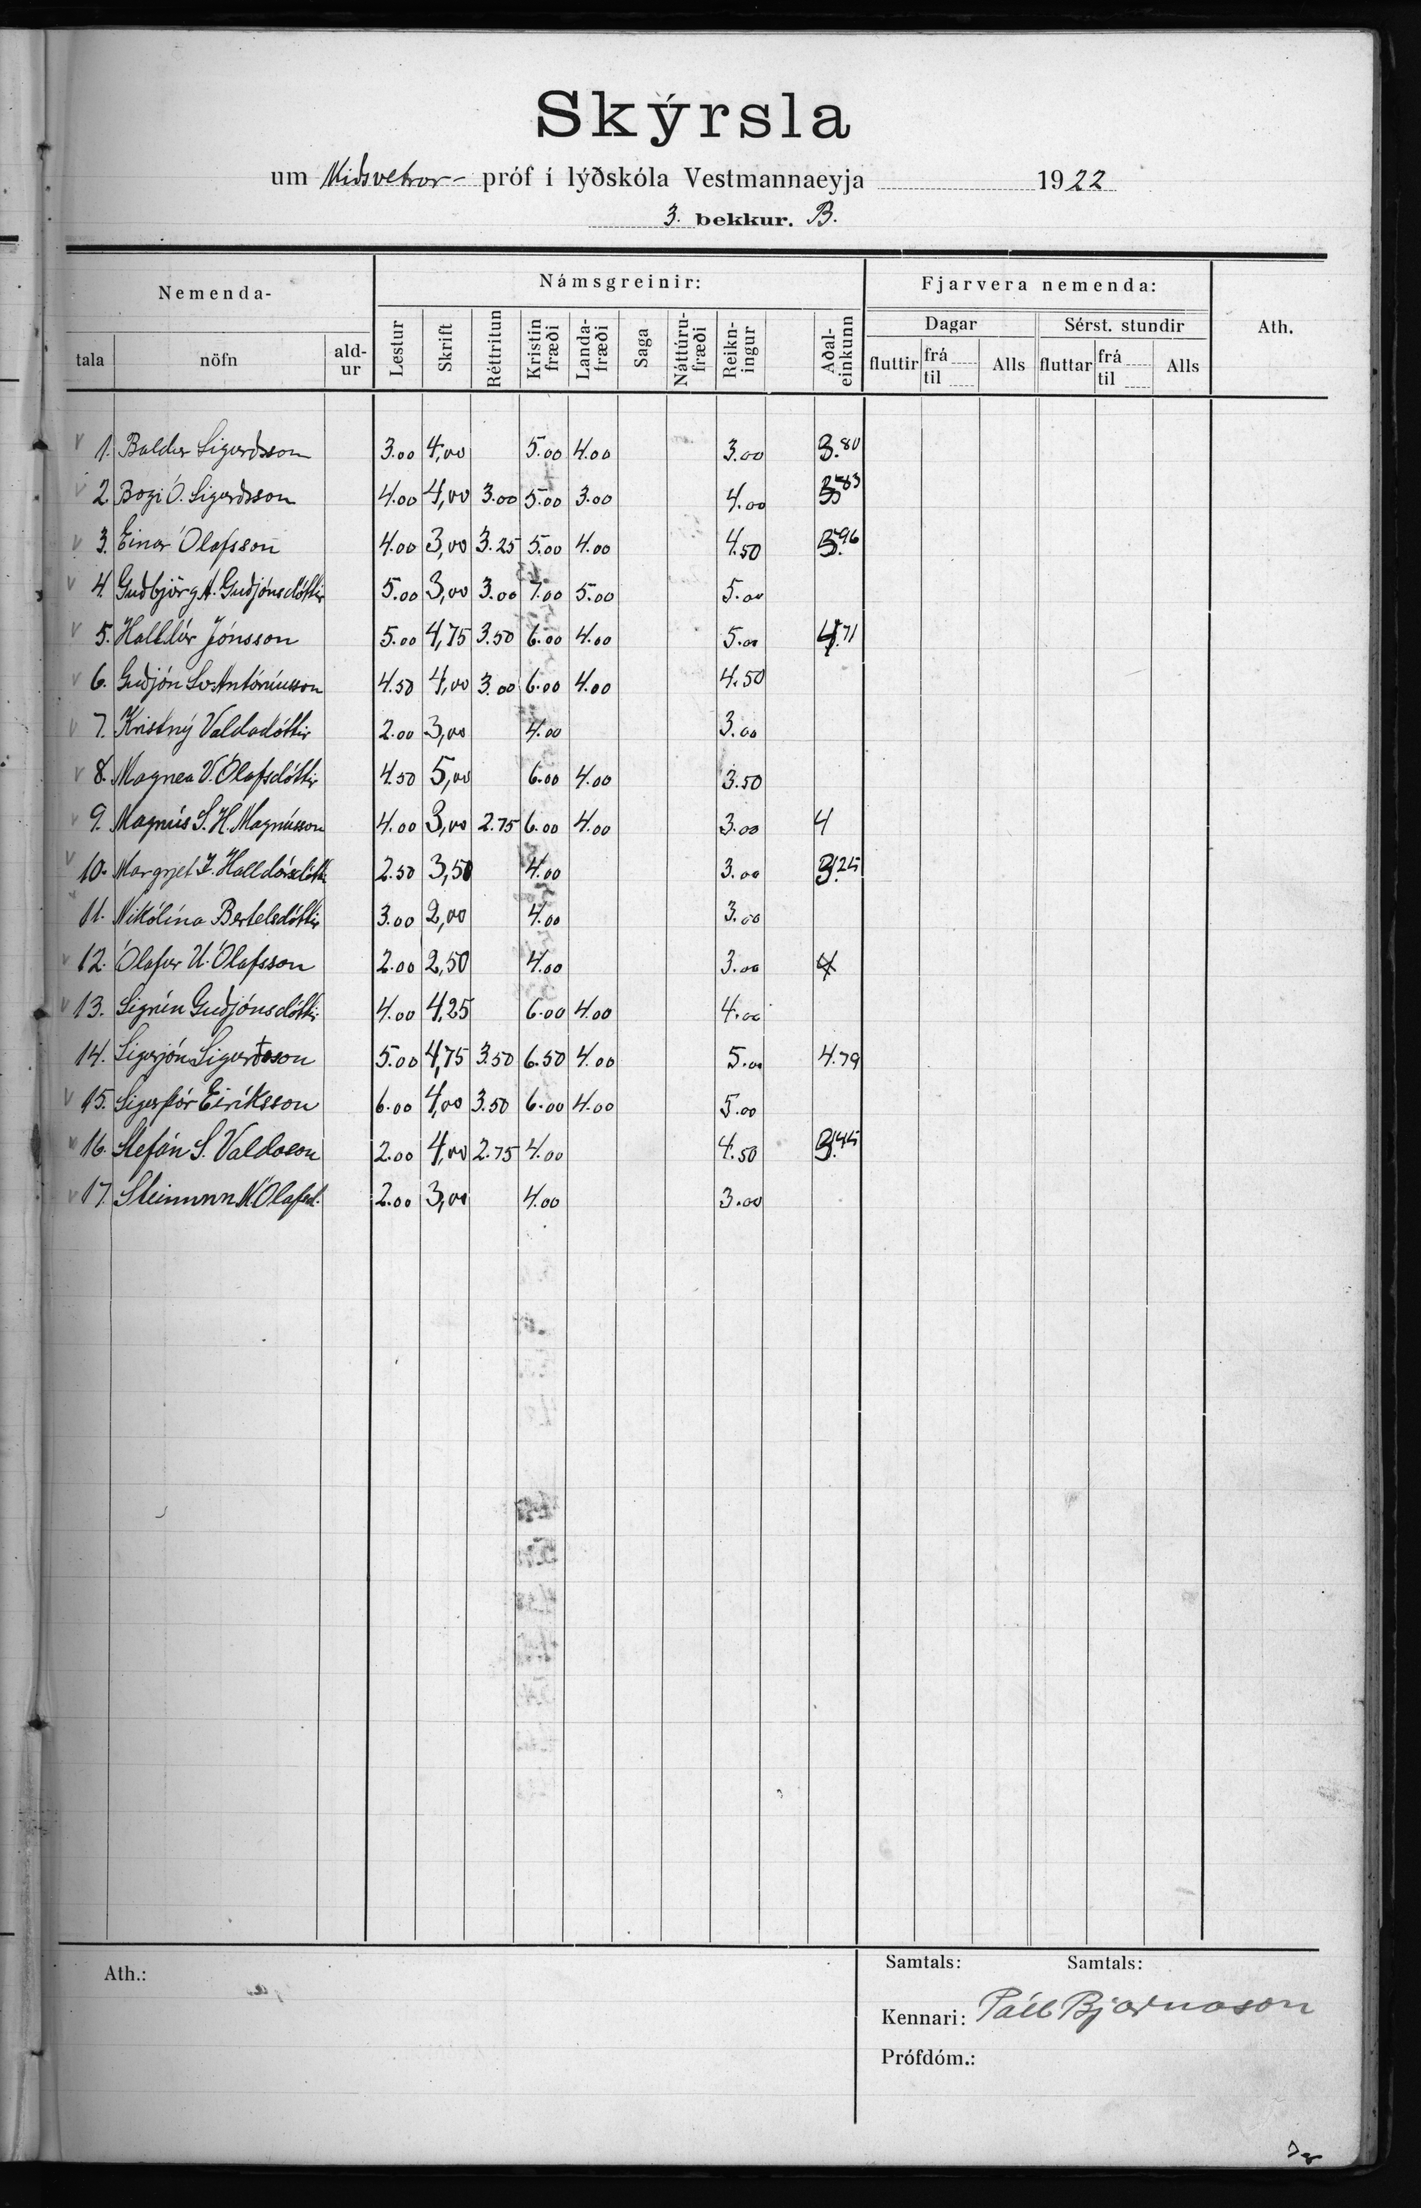 Skýrsla
um Miðsvetrar- próf í lýðskóla Vestmannaeyja 1922
3. bekkur. B.
Nemenda- Námsgreinir: Fjarvera nemenda: Ath.
Dagar Sérst. stundir
tala nöfn ald-ur Lestur Skrift Réttritun Kristin fræði Landa-fræði Saga Náttúru-fræði Reikn-ingur Aðal-einkunn fluttir frá til Alls fluttar frá til Alls
1. Baldur Sigurðsson 3.00 4,00 5.00 4.00 3.00 3.80
2. Bogi Ó. Sigurðsson 4.00 4,00 3.00 5.00 3.00 4.00 3.83
3. Einar Ólafsson 4.00 3,00 3.25 5.00 4.00 4.50 3.96
4. Guðbjörg Á. Guðjónsdóttir 5.00 3,00 3.00 7.00 5.00 5.00
5. Halldór Jónsson 5.00 4,75 3.50 6.00 4.00 5.00 4.71
6. Guðjón Antóníusson 4.50 4,00 3.00 6.00 4.00 4.50
7. Kristný Valdadóttir 2.00 3,00 4.00 3.00
8. Magnea V. Ólafsdóttir 4.50 5,00 6.00 4.00 3.50
9. Magnús S. H. Magnússon 4.00 3,00 2.75 6.00 4.00 3.00 4
10. Margrjet Halldórsdóttir 2.50 3,50 4.00 3.00 3.25
11. Nikólína Bertelsdóttir 3.00 2,00 4.00 3.00
12. Ólafur U. Ólafsson 2.00 2,50 4.00 3.00
13. Sigrún Guðjónsdóttir 4.00 4,25 6.00 4.00 4.00
14. Sigurjón Sigurðsson 5.00 4,75 3.50 6.50 4.00 5.00 4.79
15. Sigurþór Eiríksson 6.00 4,00 3.50 6.00 4.00 5.00
16. Stefán S. Valdason 2.00 4,00 2.75 4.00 4.50 3.45
17. Steinunn Ólafsd. 2.00 3,00 4.00 3.00
Ath.: Samtals: Samtals:
Kennari: Páll Bjarnason
Prófdóm.: